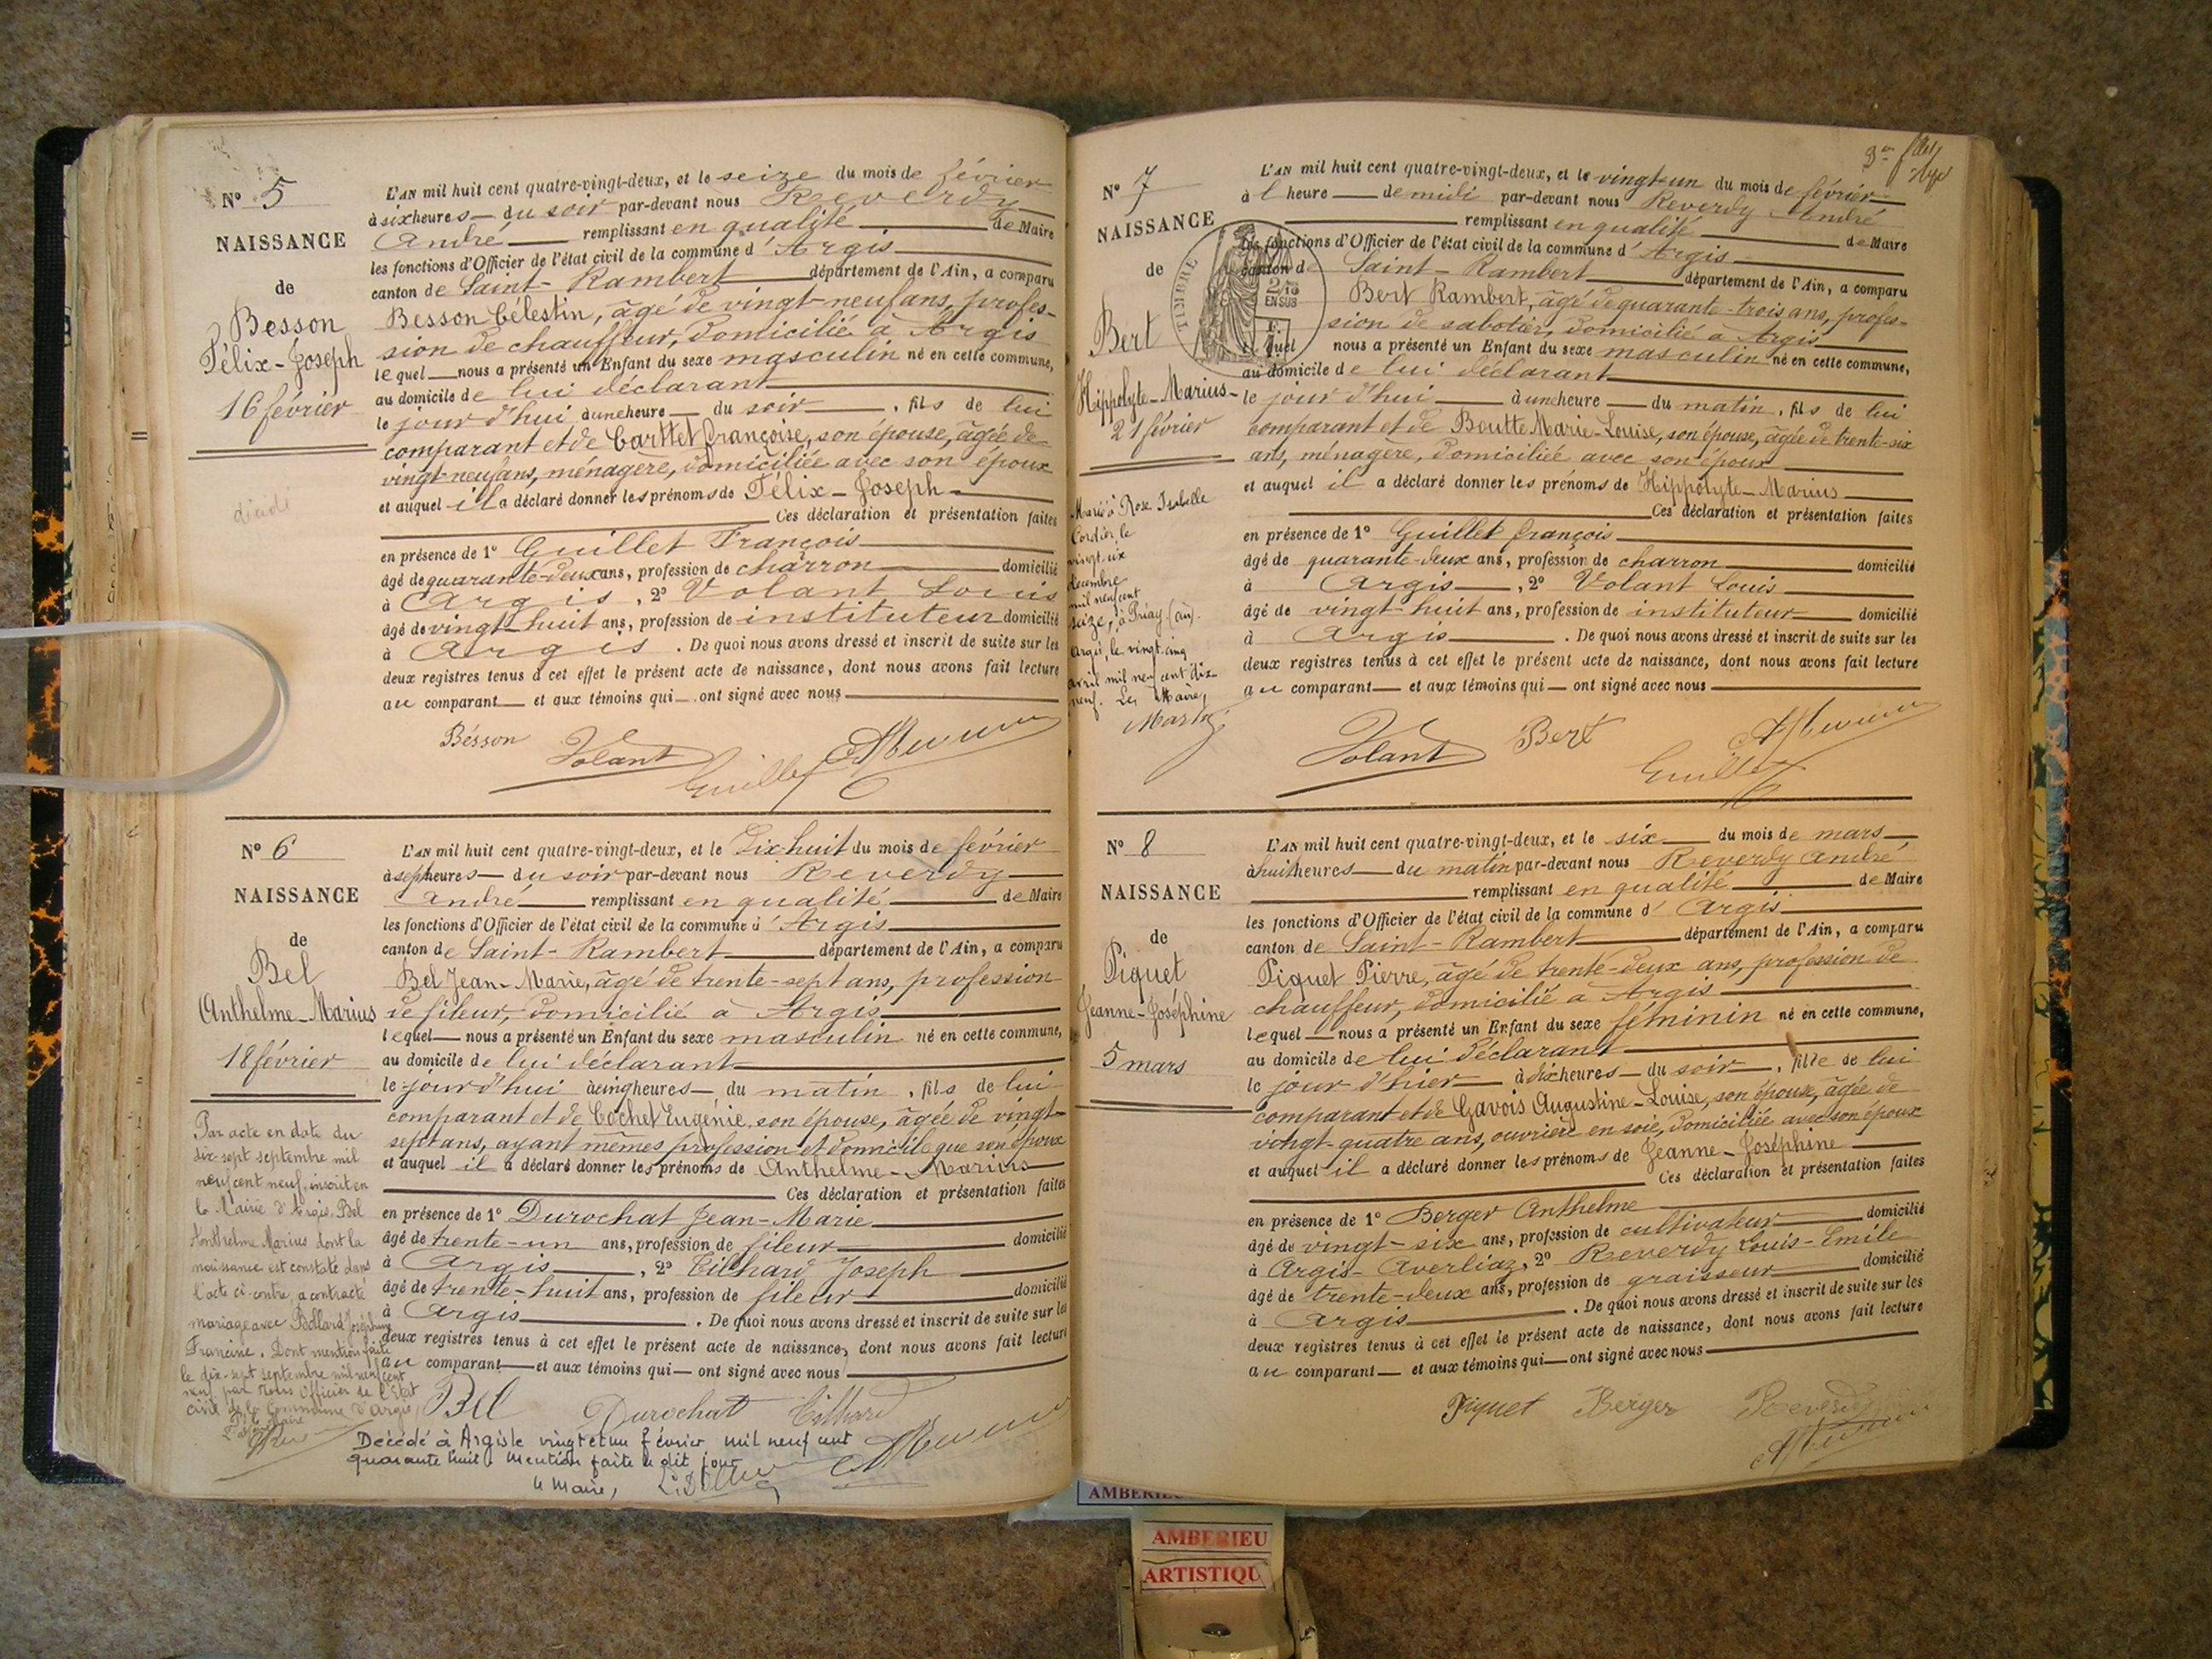 N° 5
NAISSANCE
de
Besson
Félix-Joseph
16 février
L'AN mil huit cent quatre-vingt-deux, et le seize du mois de février
à six heures du soir par-devant nous Reverdy
André remplissant en qualité de Maire
les fonctions d'Officier de l'état civil de la commune d'Argis
canton de Saint-Rambert département de l'Ain, a comparu
Besson Célestin, âgé de vingt-neuf ans, profes-
sion de chauffeur, domicilié à Argis
lequel nous a présenté un Enfant du sexe masculin né en cette commune,
au domicile de lui déclarant
le jour d'hui à une heure du soir, fils de lui
comparant et de Carttet Françoise, son épouse, âgée de
vingt-neuf ans, ménagère, domiciliée avec son époux
et auquel il a déclaré donner les prénoms de Félix-Joseph
Ces déclaration et présentation faites
en présence de 1° Guillet François
âgé de quarante-deux ans, profession de charron domicilié
à Argis, 2° Volant Louis
âgé de vingt-huit ans, profession de instituteur domicilié
à Argis. De quoi nous avons dressé et inscrit de suite sur les
deux registres tenus à cet effet le présent acte de naissance, dont nous avons fait lecture
au comparant et aux témoins qui ont signé avec nous
Besson Volant Guillet
N° 6
NAISSANCE
de
Bel
Anthelme-Marius
18 février
Par acte en date du
dix-sept septembre mil
neuf cent neuf, inscrit en
la Mairie d'Argis, Bel
Anthelme Marius dont la
naissance est constatée dans
l'acte ci-contre, a contracté
mariage avec Bollard Joséphine
Francine. Dont mention faite
le dix-sept septembre mil neuf cent
neuf par nous Officier de l'Etat
civil de la Commune d'Argis
L'AN mil huit cent quatre-vingt-deux, et le dix-huit du mois de février
à sept heures du soir par-devant nous Reverdy
André remplissant en qualité de Maire
les fonctions d'Officier de l'état civil de la commune d'Argis
canton de Saint-Rambert département de l'Ain, a comparu
Bel Jean-Marie, âgé de trente-sept ans, profession
de fileur, domicilié à Argis
lequel nous a présenté un Enfant du sexe masculin né en cette commune,
au domicile de lui déclarant
le jour d'hui à cinq heures du matin, fils de lui
comparant et de Cochet Eugénie, son épouse, âgée de vingt-
sept ans, ayant mêmes profession et domicile que son époux
et auquel il a déclaré donner les prénoms de Anthelme-Marius
Ces déclaration et présentation faites
en présence de 1° Durochat Jean-Marie
âgé de trente-un ans, profession de fileur domicilié
à Argis, 2° Tilhard Joseph
âgé de trente-huit ans, profession de fileur domicilié
à Argis. De quoi nous avons dressé et inscrit de suite sur les
deux registres tenus à cet effet le présent acte de naissance, dont nous avons fait lecture
au comparant et aux témoins qui ont signé avec nous
Bel Durochat Tilhard
Décédé à Argis le vingt et un février mil neuf cent
quarante huit. Mention faite le dit jour
le Maire,
N° 7
NAISSANCE
de
Bert
Hippolyte-Marius
21 février
Marié à Rose Isabelle
Cordier, le
vingt-six
décembre
mil neuf cent
seize, à Priay (Ain).
Argis, le vingt-cinq
avril mil neuf cent dix
neuf. Le Maire,
TIMBRE
EN SUS
L'AN mil huit cent quatre-vingt-deux, et le vingt-un du mois de février
à l heure de midi par-devant nous Reverdy André
remplissant en qualité de Maire
les fonctions d'Officier de l'état civil de la commune d'Argis
canton de Saint-Rambert département de l'Ain, a comparu
Bert Rambert, âgé de quarante-trois ans, profes-
sion de sabotier, domicilié à Argis
lequel nous a présenté un Enfant du sexe masculin né en cette commune,
au domicile de lui déclarant
le jour d'hui à une heure du matin, fils de lui
comparant et de Boutte Marie-Louise, son épouse, âgée de trente-six
ans, ménagère, domiciliée avec son époux
et auquel il a déclaré donner les prénoms de Hippolyte-Marius
Ces déclaration et présentation faites
en présence de 1° Guillet François
âgé de quarante-deux ans, profession de charron domicilié
à Argis, 2° Volant Louis
âgé de vingt-huit ans, profession de instituteur domicilié
à Argis. De quoi nous avons dressé et inscrit de suite sur les
deux registres tenus à cet effet le présent acte de naissance, dont nous avons fait lecture
au comparant et aux témoins qui ont signé avec nous
Volant Bert Guillet
N° 8
NAISSANCE
de
Piquet
Jeanne-Joséphine
5 mars
L'AN mil huit cent quatre-vingt-deux, et le six du mois de mars
à huit heures du matin par-devant nous Reverdy André
remplissant en qualité de Maire
les fonctions d'Officier de l'état civil de la commune d'Argis
canton de Saint-Rambert département de l'Ain, a comparu
Piquet Pierre, âgé de trente-deux ans, profession de
chauffeur, domicilié à Argis
lequel nous a présenté un Enfant du sexe féminin né en cette commune,
au domicile de lui déclarant
le jour d'hier à dix heures du soir, fille de lui
comparant et de Gavois Augustine-Louise, son épouse, âgée de
vingt-quatre ans, ouvrière en soie, domiciliée avec son époux
et auquel il a déclaré donner les prénoms de Jeanne-Joséphine
Ces déclaration et présentation faites
en présence de 1° Berger Anthelme
âgé de vingt-six ans, profession de cultivateur domicilié
à Argis-Averliaz, 2° Reverdy Louis-Emile
âgé de trente-deux ans, profession de graisseur domicilié
à Argis. De quoi nous avons dressé et inscrit de suite sur les
deux registres tenus à cet effet le présent acte de naissance, dont nous avons fait lecture
au comparant et aux témoins qui ont signé avec nous
Piquet Berger Reverdy
AMBERIEU
AMBERIEU
ARTISTIQU